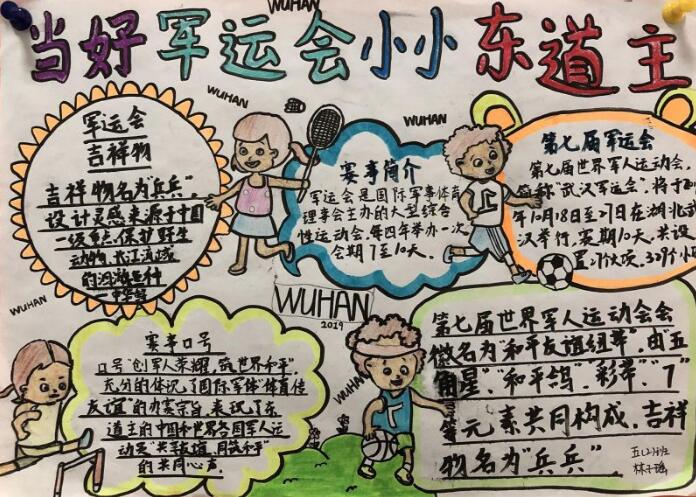 WUHAN
当好军运会小小东道主
WUHAN
WUHAN
军运会
吉祥物
吉祥物名为"兵兵",
设计灵感来源于中国
一级重点保护野生
动物、长江流域
的
亚种
赛事简介
军运会是国际军事体育
理事会主办的大型综合
性运动会,每四年举办一次
会期7至10天。
第七届军运会
第七届世界军人运动会,
简称"武汉军运会",将于20
年10月18日至27日在湖北武
汉举行,赛期10天,共设
置27个大项、309个小
WUHAN
2019
WUHAN
赛事口号
口号"创军人荣耀,筑世界和平",
充分的体现了国际军体"体育传
友谊"的办赛宗旨,表现了东
道主的中国和世界各国军人运
动员"共享友谊,同筑和平"
的共同心声。
WUHAN
第七届世界军人运动会会
徽名为"和平友谊纽带",由"五
角星"、"和平鸽"、彩带"、"7"
等元素共同构成,吉祥
物名为"兵兵"